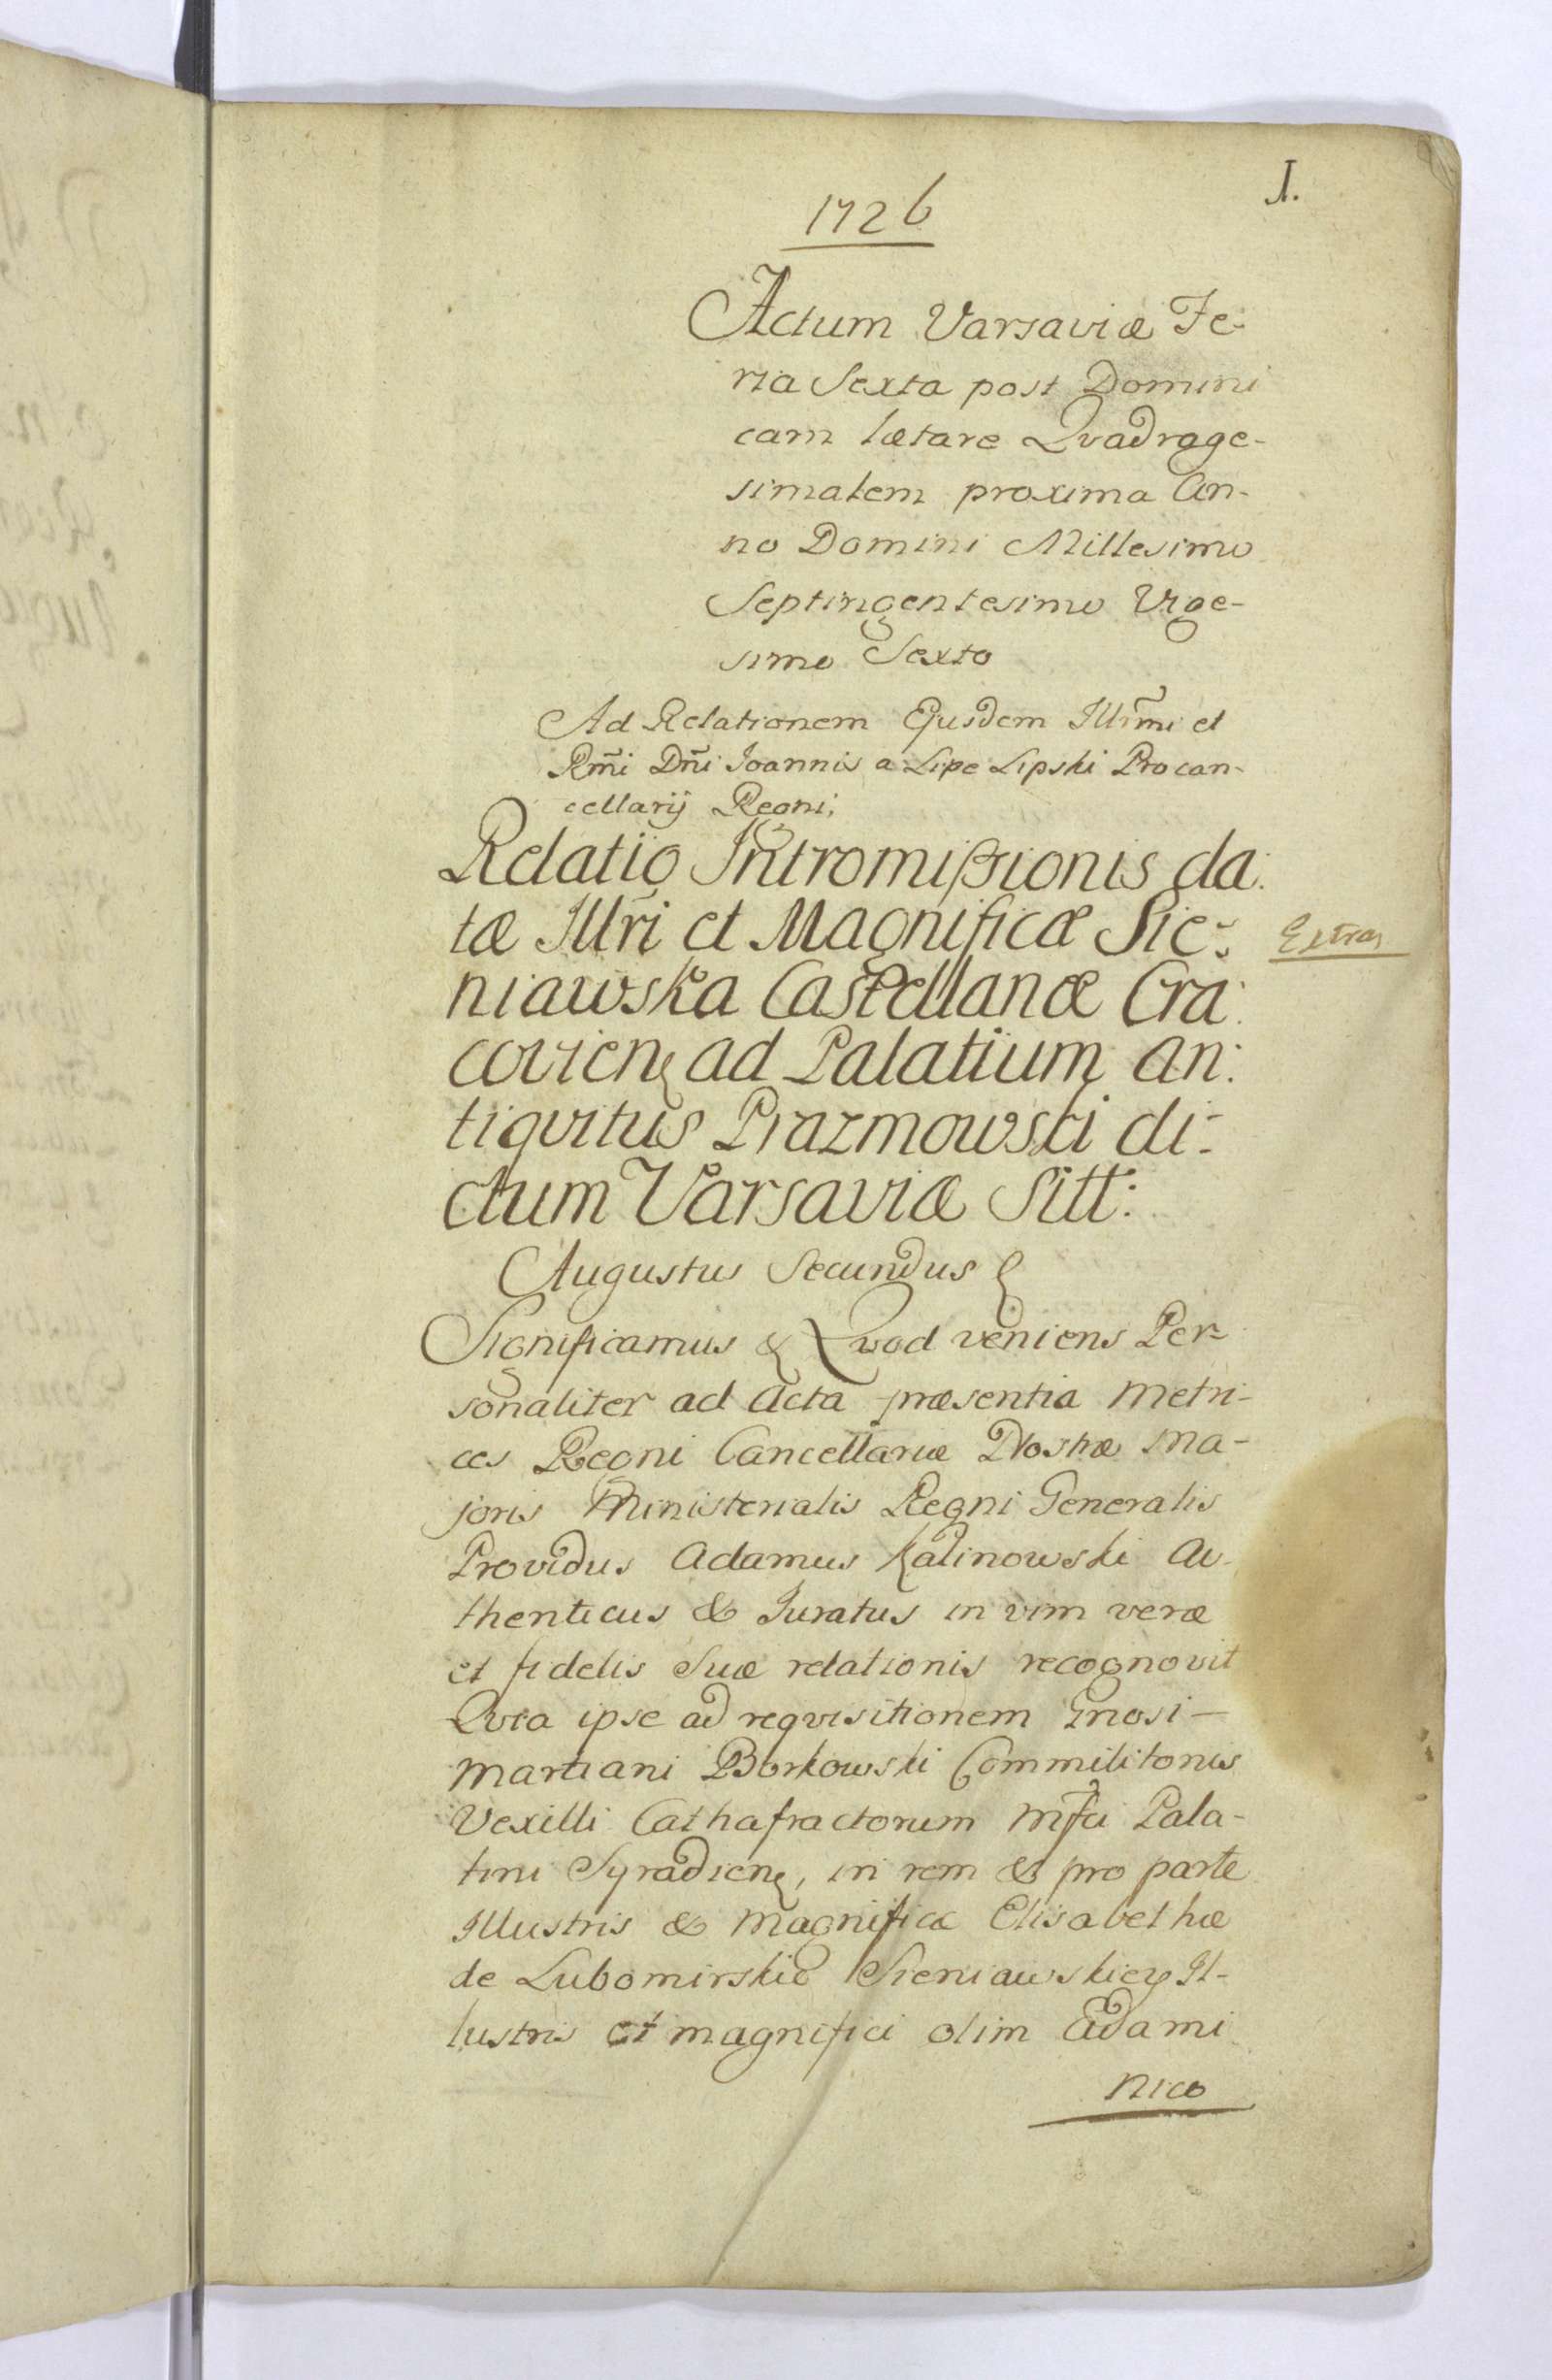 1.
1726
Actum Varsaviæ Fe-
ria Sexta post Domini
cam lætare Qvadrage-
simalem proxima An-
no Domini Millesimo
Septingentesimo Vige-
simo Sexto
Ad Relationem Ejusdem Illr̃mi et
Rm̃i Dñi Joannis a Lipe Lipski Procan-
cellarij Regni;
Relatio Intromißionis da:
tæ Illr̃i et Magnificæ Sie-
niawska Castellanæ Cra:
covien ad Palatium an:
tiqvitus Prazmowski di-
ctum Varsaviæ Sitt:
Extras
Augustus Secundus
Significamus & Qvod veniens Per-
sonaliter ad Acta præsentia Metri-
ces Regni Cancellariæ Nostræ Ma-
joris Ministerialis Regni Generalis
Providus Adamus Kalinowski Au-
thenticus & Juratus in vim veræ
et fidelis Suæ relationis recognovit
Qvia ipse ad reqvisitionem Gnosi
Martiani Borkowski Commilitonis
Vexilli Cathafractorum Mfci Pala-
tini Syradien, in rem & pro parte
Illustris & Magnificæ Elisabethæ
de Lubomirskie Sieniawskiey Il-
lustris et magnifici olim Adami
Nico